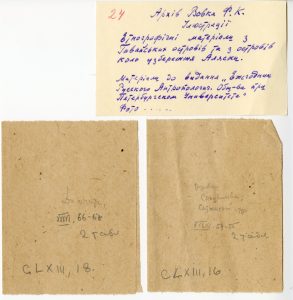 24
Архів Вовка Ф. К.
Ілюстрації
Етнографічні матеріали з
Гавайських островів та з островів
коло узбережжя Аляски.
Матеріал до видання „Ежегодник
Русского Антрополог. Общ-ва при
Петербургском Университете"
Фото . . . . .
66-68
2 табл
CLXIII, 18.
2 табл
CLXIII, 16